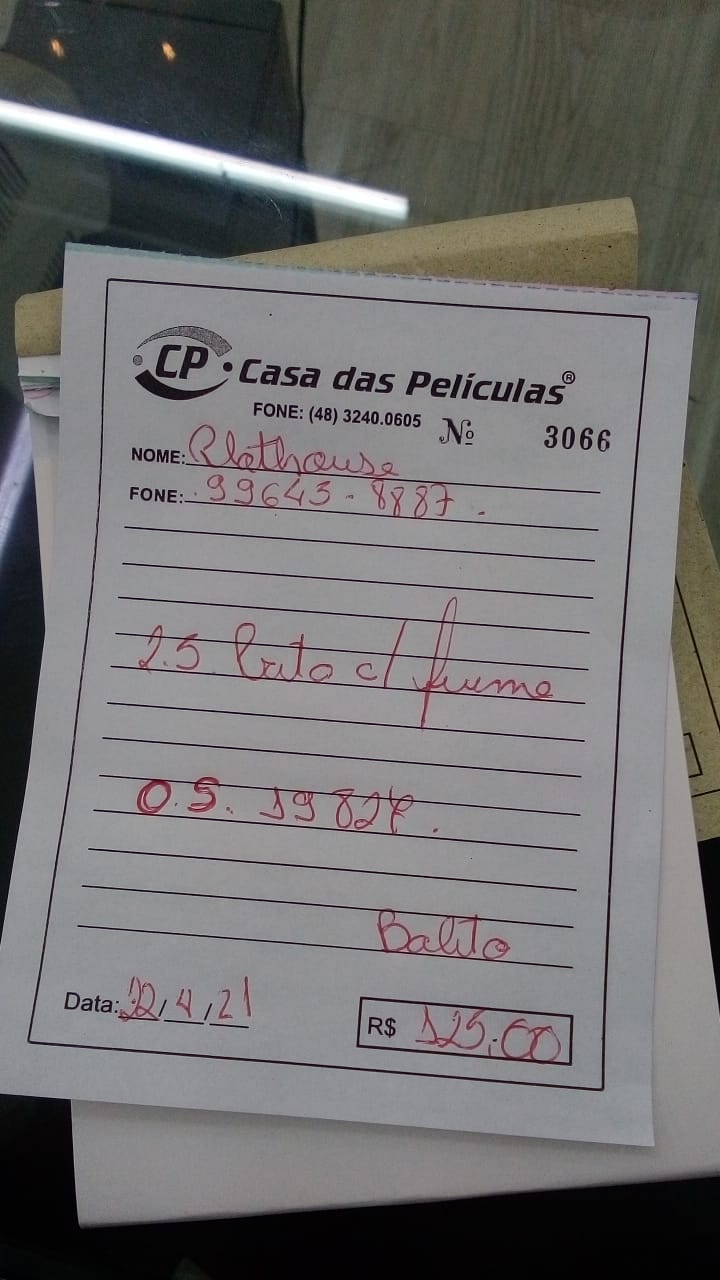 CP Casa das Películas®
FONE: (48) 3240.0605 Nº 3066
NOME: Plothouse
FONE: 99643-8887.
2.5 Preto c/ fume
O.S. 19827.
Balito
Data: 22/4/21 R$ 125,00